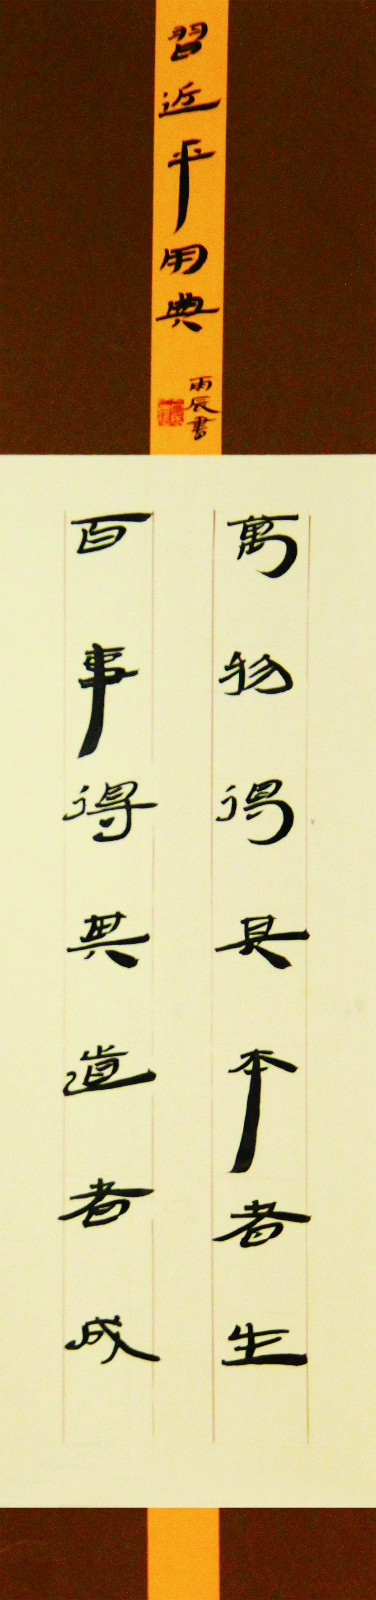 習近平用典
丙辰書
萬物得其本者生
百事得其道者成